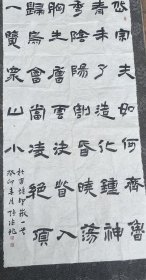 岱宗夫如何齊魯
青未了造化鍾神
秀陰陽割昏曉蕩
胸生層雲決眥入
歸鳥會當凌絕頂
一覽衆山小
癸卯春月